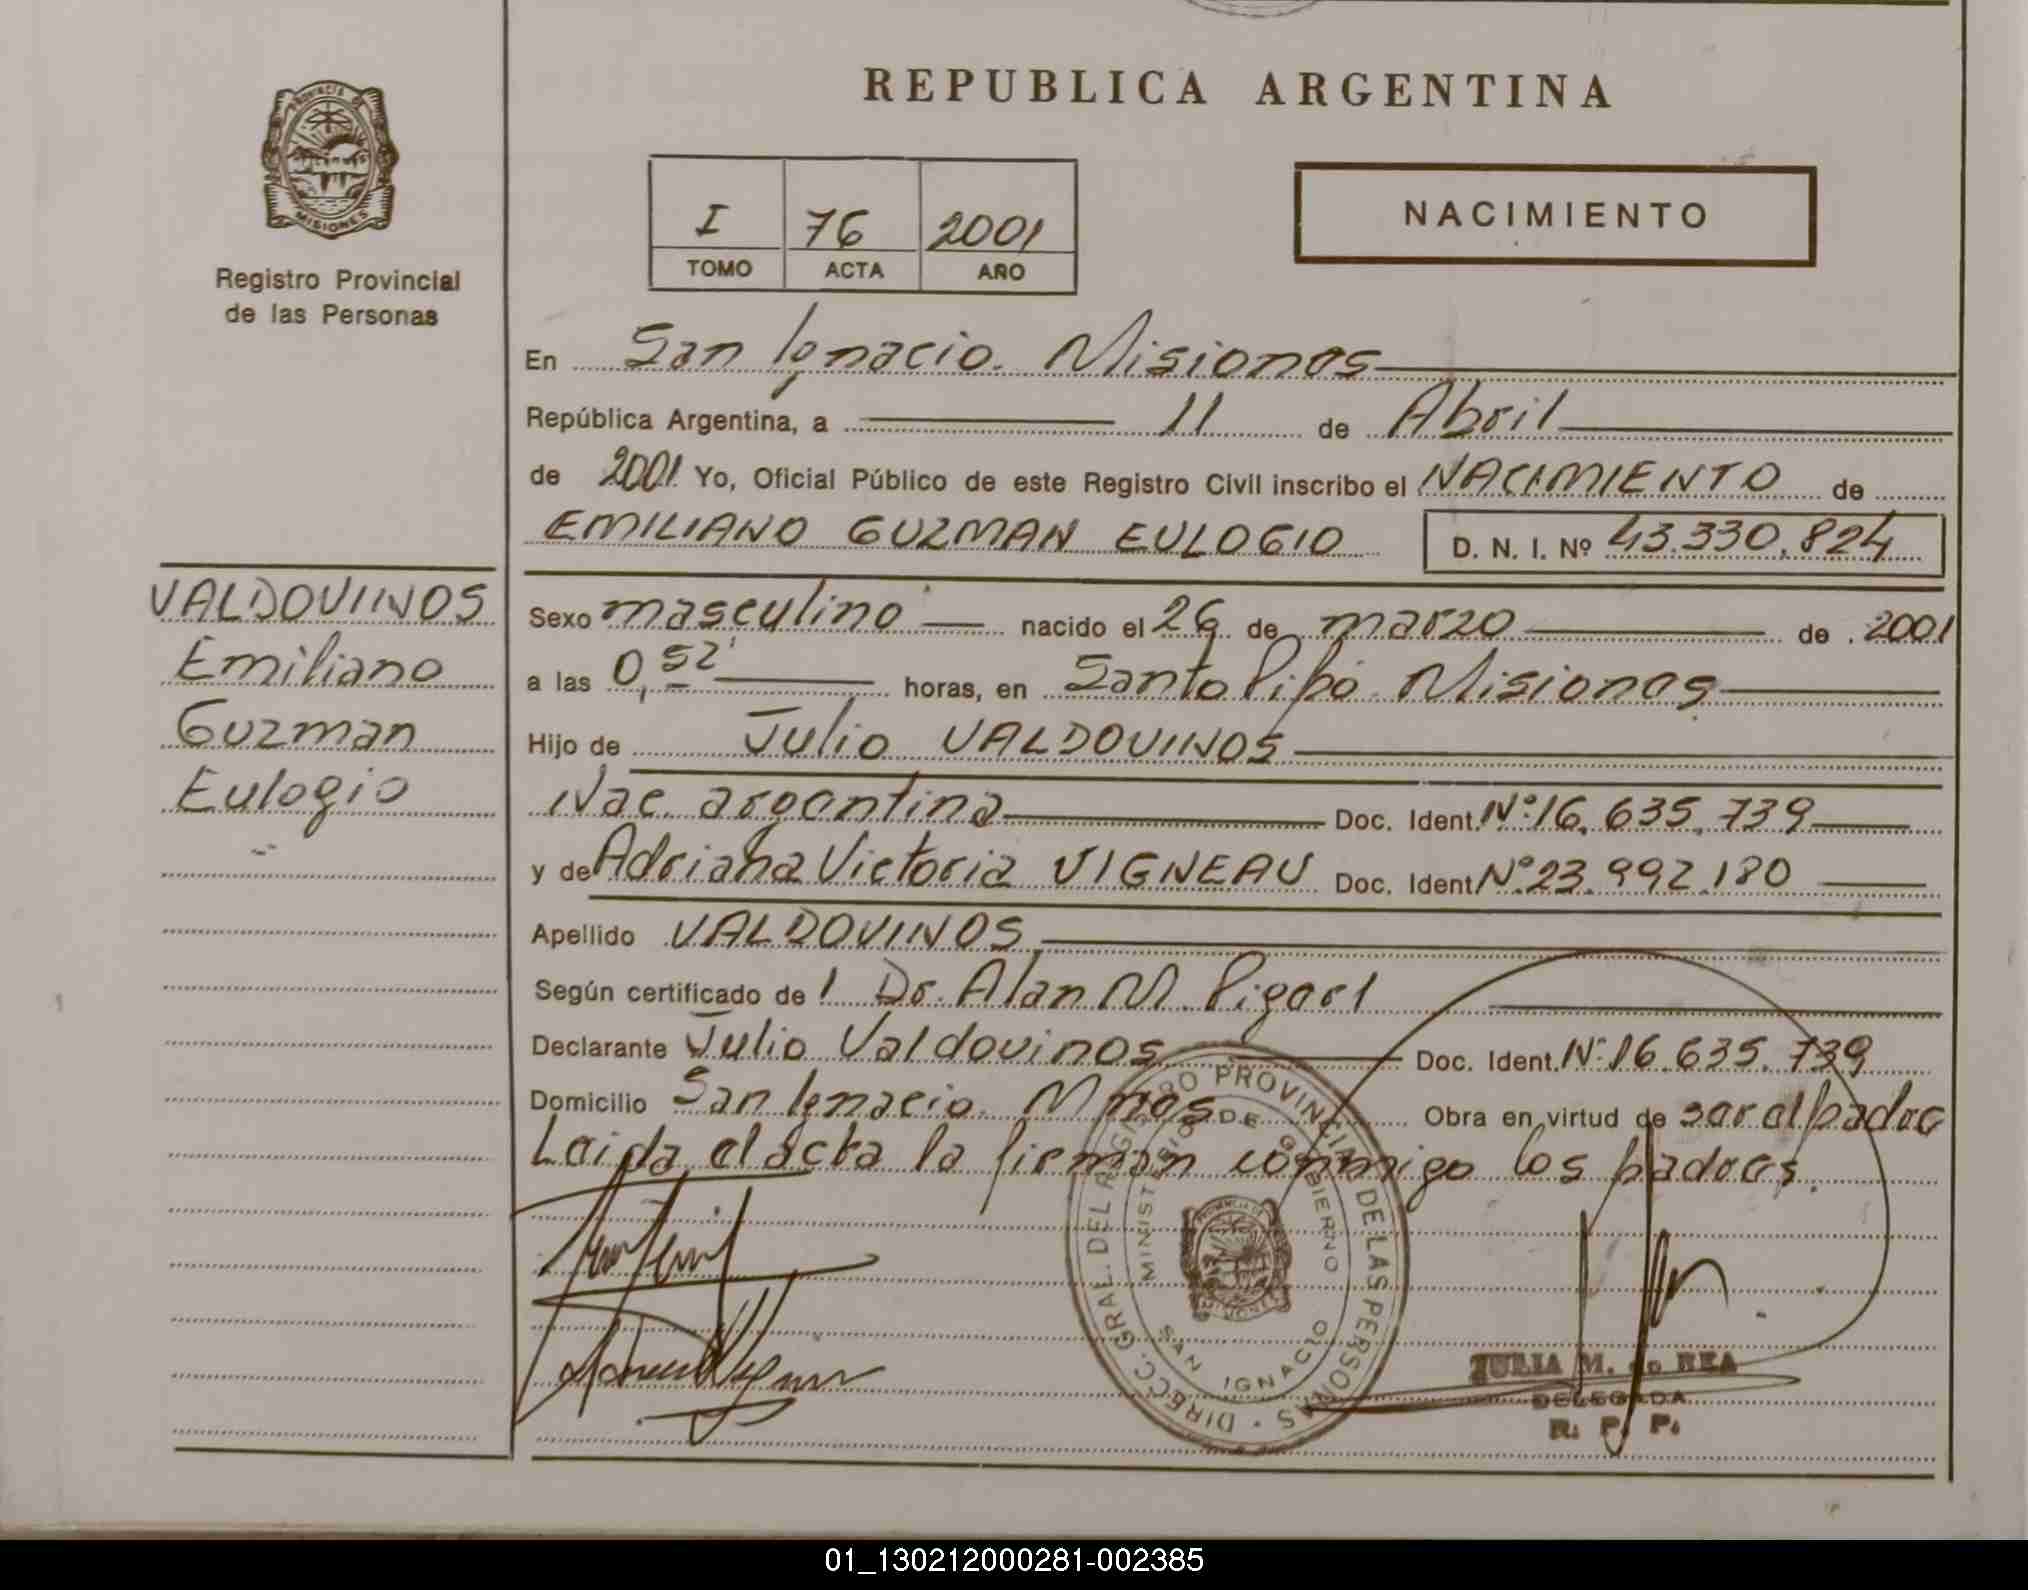 REPUBLICA ARGENTINA
PROVINCIA DE
MISIONES
Registro Provincial
de las Personas
I 76 2001
TOMO ACTA AÑO
NACIMIENTO
En San Ignacio. Misiones
República Argentina, a 11 de Abril
de 2001 Yo, Oficial Público de este Registro Civil inscribo el NACIMIENTO de
EMILIANO GUZMAN EULOGIO D. N. I. Nº 43.330.824
VALDOVINOS
Emiliano
Guzman
Eulogio
Sexo masculino nacido el 26 de marzo de 2001
a las 0,52' horas, en Santo Pipó Misiones
Hijo de Julio VALDOVINOS
Nac. argentina Doc. Ident. Nº 16.635.739
y de Adriana Victoria VIGNEAU Doc. Ident Nº 23.992.180
Apellido VALDOVINOS
Según certificado de l Dr. Alan M.
Declarante Julio Valdovinos Doc. Ident. Nº 16.635.739
Domicilio San Ignacio. Mnes Obra en virtud de ser el padre
Leida el acta la firman conmigo los padres.
DIRECC. GRAL. DEL REGISTRO PROVINCIAL DE LAS PERSONAS
MINISTERIO DE GOBIERNO
PROVINCIA DE
MISIONES
SAN IGNACIO
JULIA M. de REA
DELEGADA
R. P. P.
01_130212000281-002385